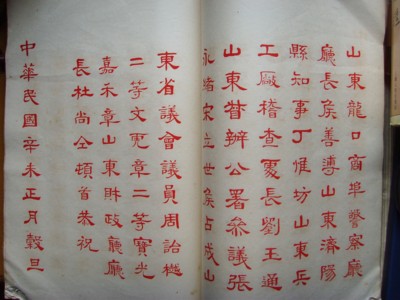 山東龍口商埠警察廳
廳長侯善溥山東濟陽
縣知事丁惟坊山東兵
工廠稽查處長劉玉通
山東督辦公署參議張
永緒宋立世侯占成山
東省議會議員周詒樾
二等文虎章二等寶光
嘉禾章山東財政廳廳
長杜尚仝頓首恭祝
中華民國辛未正月穀旦